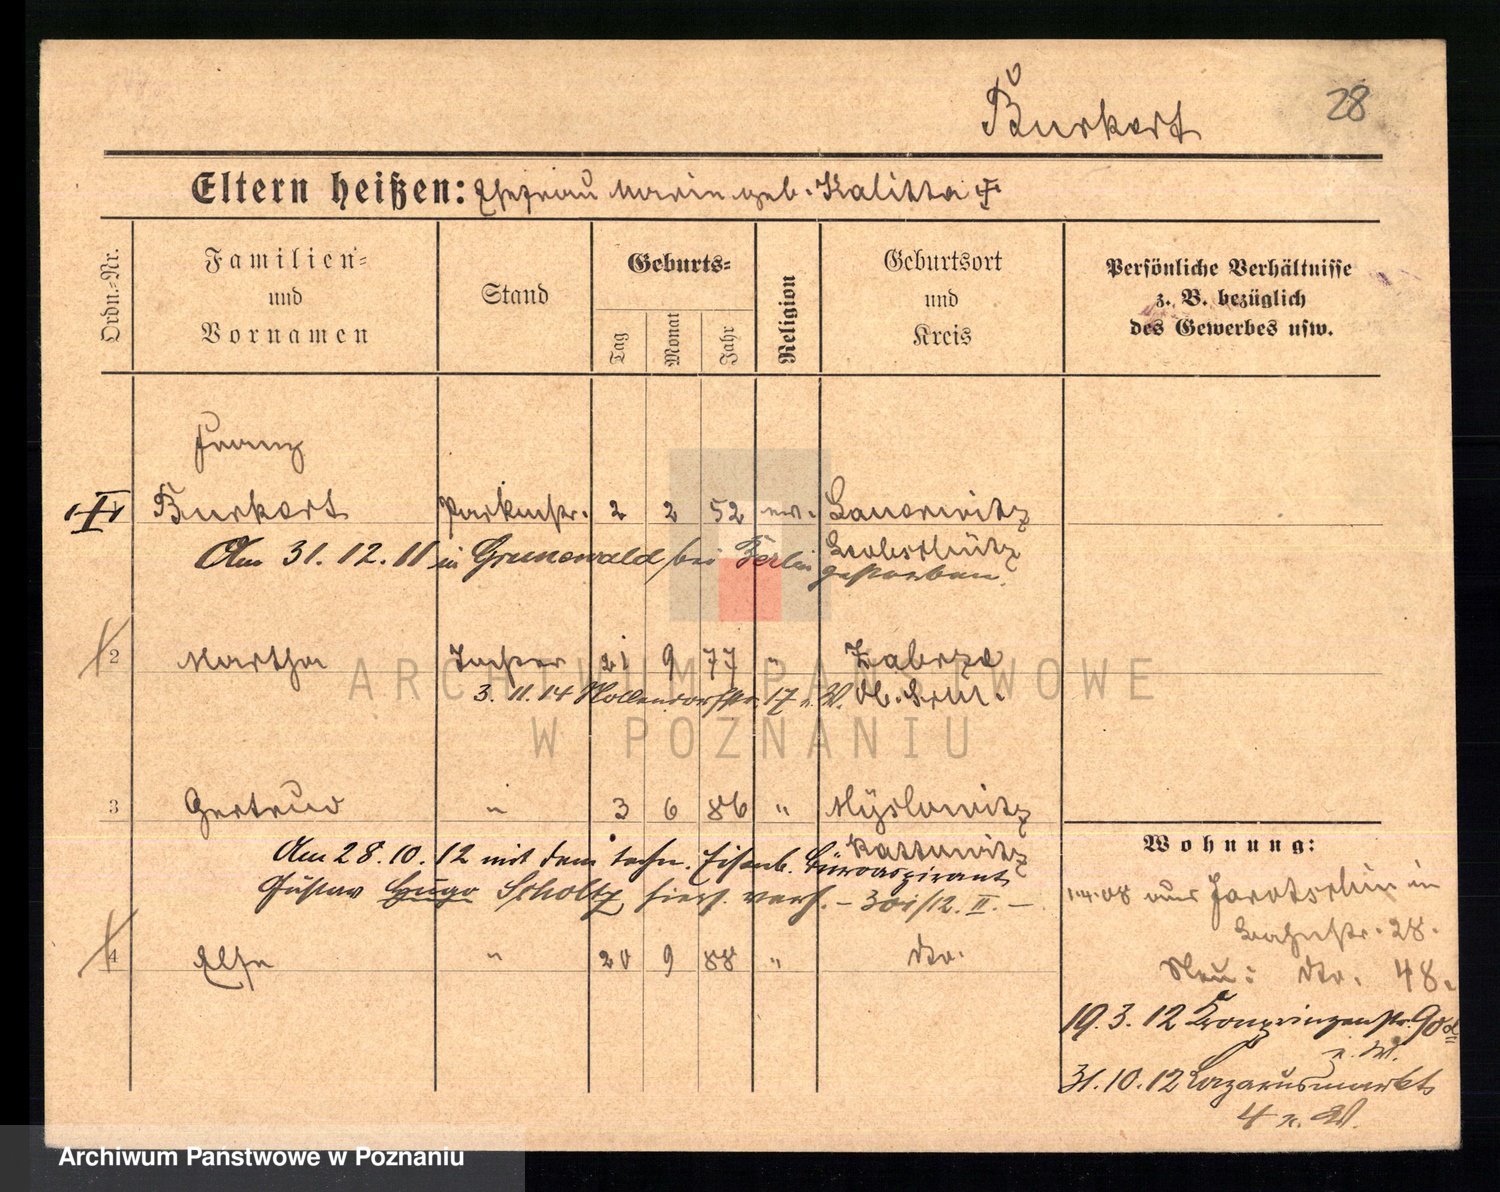 28
Burkert
Eltern heißen: Ehefrau Marie geb. Kalitta
Ordn.-Nr.
Familien- und Vornamen
Stand
Geburts-
Tag
Monat
Jahr
Religion
Geburtsort und Kreis
Persönliche Verhältnisse z. B. bezüglich des Gewerbes usw.
Franz
Burkert 2 2 52 ev. Bauerwitz
Leobschütz
Am 31. 12. 11 in Grunewald bei Berlin gestorben.
2 Martha Tochter 21 9 77 " Zabrze
3. 11. 14 Nollendorfstr. 17 z. W.
3 Gertrud " 3 6 86 " Myslowitz
Kattowitz
Am 28. 10. 12 mit dem techn. Eisenb. Büroaspirant
Gustav Hugo Scholtz hiers. verh. –
4 Else " 20 9 88 " dto.
Wohnung:
1.4.08 aus Jarotschin in
Bahnstr. 28.
Neu: dto. 48.
19. 3. 12 Kronprinzenstr. 90
z. W.
31. 10. 12 Lazarusmarkt
4 z. W.
ARCHIWUM PAŃSTWOWE
W POZNANIU
Archiwum Państwowe w Poznaniu